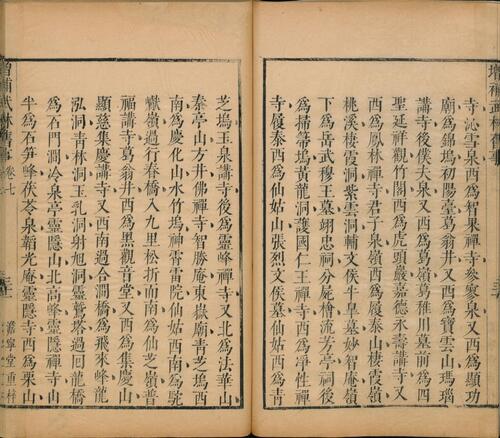 寺沁雪泉西為智果禪寺參寥泉又西為顯功
廟為錦塢初陽臺葛翁井又西為寶雲山瑪瑙
講寺後僕夫泉又西為葛嶺葛稚川墓前為四
聖延祥觀竹閣西為虎頭巖嘉德永壽講寺又
西為鳳林禪寺君子泉嶺西為履泰山棲霞嶺
桃溪棲霞洞紫雲洞輔文侯牛皐墓妙智庵嶺
下為岳武穆王墓翊忠祠分屍檜流芳亭祠後
為掃箒塢黃龍洞護國仁王禪寺西為淨性禪
寺履泰西為仙姑山張烈文侯墓仙姑西為青
芝塢玉泉講寺後為靈峰禪寺又北為法華山
秦亭山方井佛禪寺智勝庵東嶽廟青芝塢西
南為慶化山水竹塢神霄雷院仙姑西南為駝
巘嶺過行春橋入九里松折而南為仙芝嶺普
福講寺葛翁井西為黑觀音堂又西為集慶山
顯慈集慶講寺又西南過合澗橋為飛來峰龍
泓洞青林洞玉乳洞射旭洞靈鷲塔過回龍橋
為石門澗冷泉亭靈隱山北高峰靈隱禪寺山
半為石笋峰茯苓泉韜光庵靈隱寺西為巢山
卷七
嘉寧堂重梓